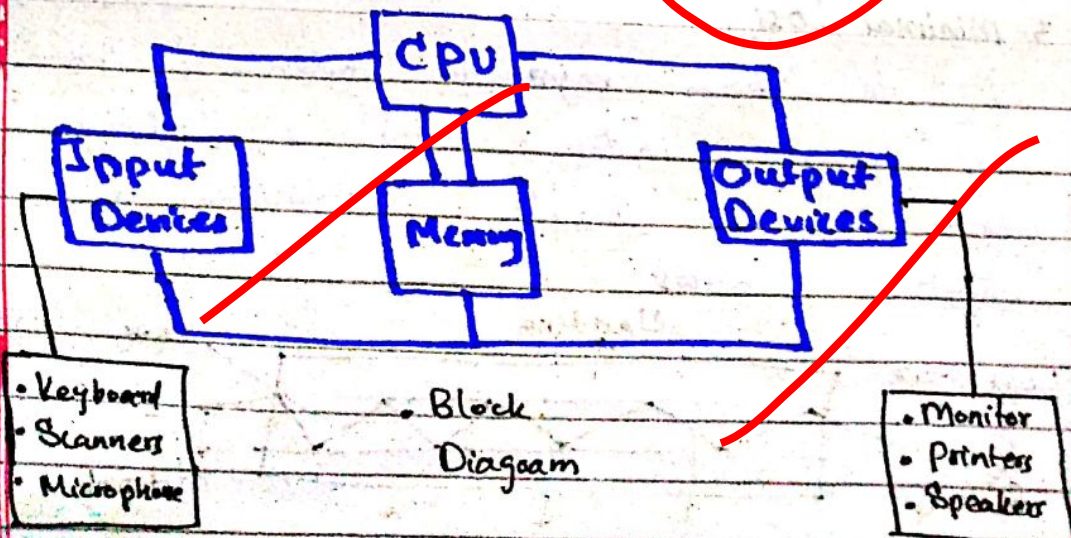 CPU
Input
Devices
Memory
Output
Devices
• Keyboard
• Scanners
• Microphone
• Block
Diagram
• Monitor
• Printers
• Speakers